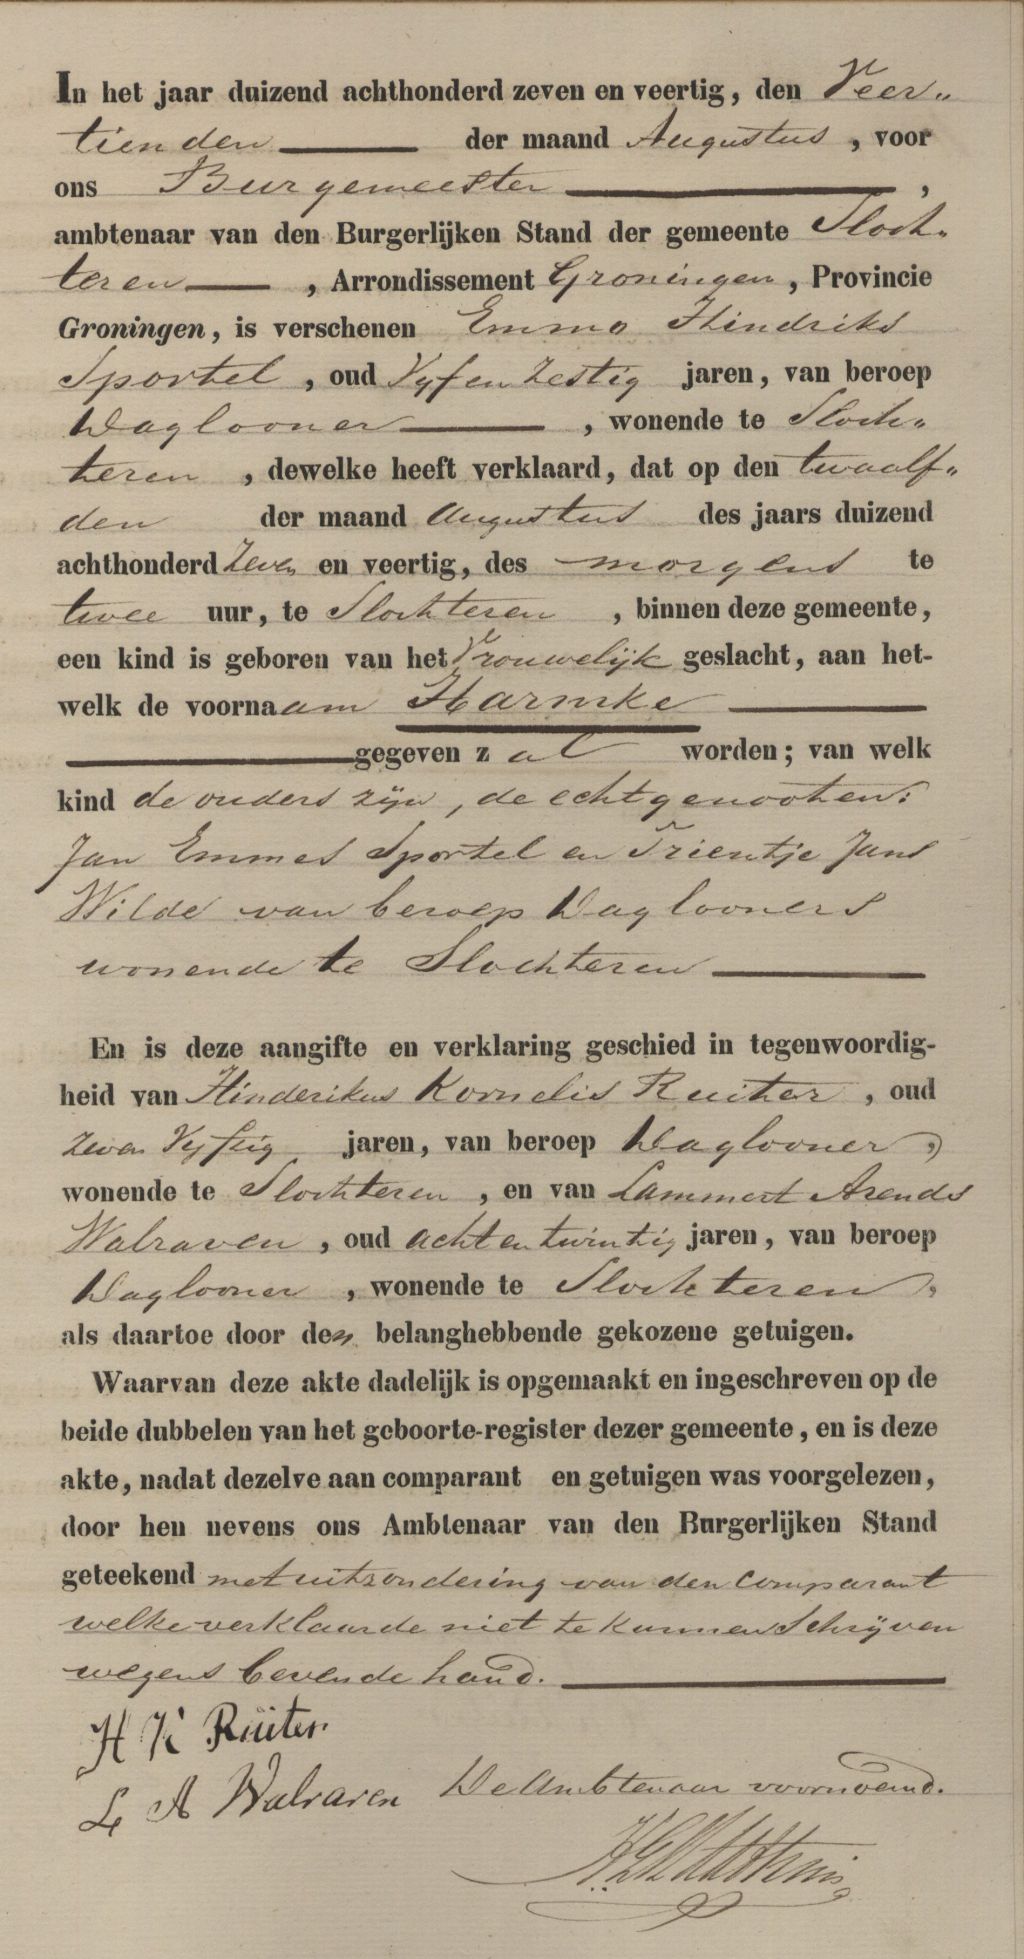 In het jaar duizend achthonderd zeven en veertig, den Veer„
tienden der maand Augustus, voor
ons Burgemeester ,
ambtenaar van den Burgerlijken Stand der gemeente Sloch„
teren , Arrondissement Groningen, Provincie
Groningen, is verschenen Emmo Hindriks
Sportel, oud Vyfenzestig jaren, van beroep
Daglooner , wonende te Sloch„
teren, dewelke heeft verklaard, dat op den twaalf„
den der maand Augustus des jaars duizend
achthonderd Zeven en veertig, des morgens te
twee uur, te Slochteren, binnen deze gemeente,
een kind is geboren van het Vrouwelijk geslacht, aan het-
welk de voornaam Harmke
gegeven zal worden; van welk
kind de ouders zijn, de echtgenooten:
Jan Emmes Sportel en Trientje Jans
Wilde van beroep Daglooners
wonende te Slochteren
En is deze aangifte en verklaring geschied in tegenwoordig-
heid van Hinderikus Kornelis Ruiter, oud
zeven Vyftig jaren, van beroep Daglooner,
wonende te Slochteren, en van Lammert Arends
Walraven, oud achtentwintig jaren, van beroep
Daglooner, wonende te Slochteren,
als daartoe door den belanghebbende gekozene getuigen.
Waarvan deze akte dadelijk is opgemaakt en ingeschreven op de
beide dubbelen van het geboorte-register dezer gemeente, en is deze
akte, nadat dezelve aan comparant en getuigen was voorgelezen,
door hen nevens ons Ambtenaar van den Burgerlijken Stand
geteekend met uitzondering van den comparant
welke verklaarde niet te kunnen Schrijven
wegens bevende hand.
H K Ruiter
L A Walraven De Ambtenaar voornoemd.